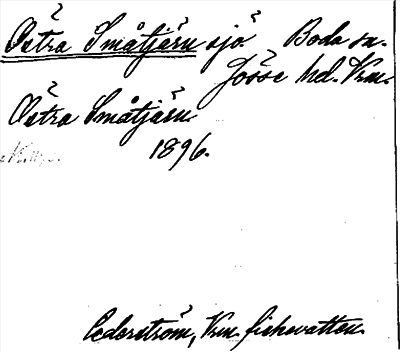 Östra Småtjärn sjö. Boda sn.
Jösse hd. Vrm.
Östra Småtjärn
1896.
Cederström, Vrm. fiskevatten.